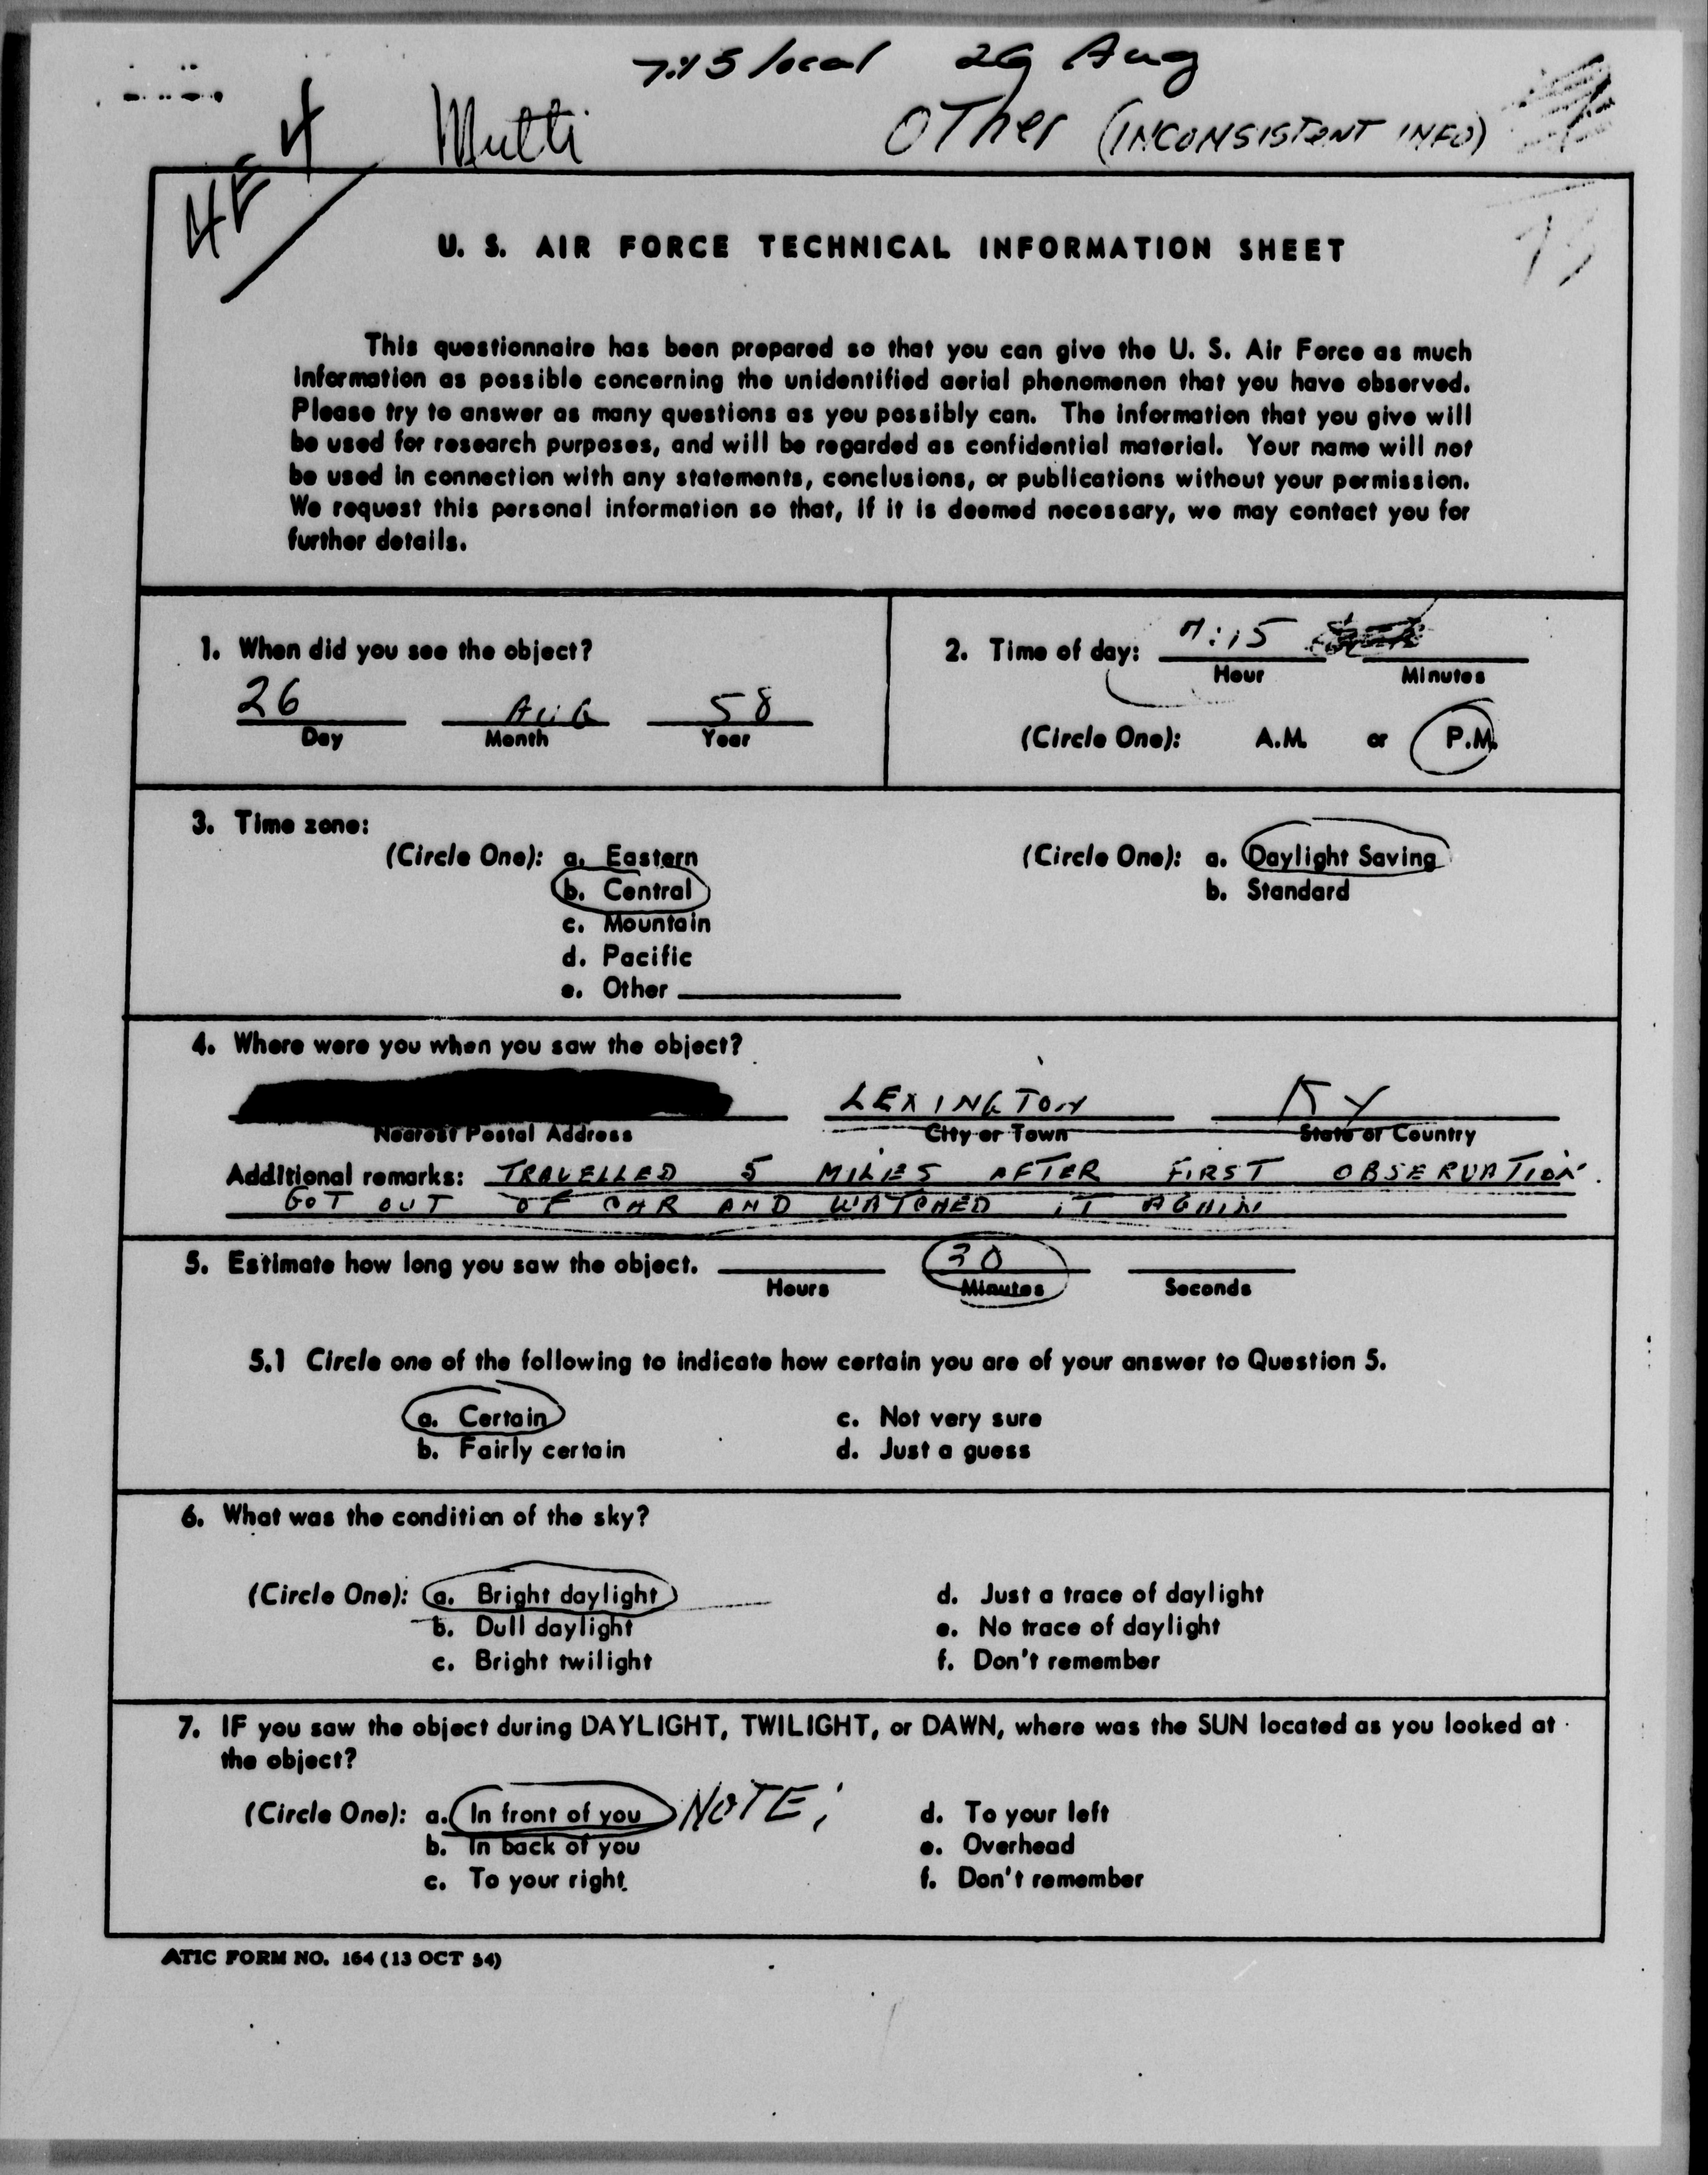 7:15 local 26 Aug
4 Multi OTher (INCONSISTENT INFO)
U. S. AIR FORCE TECHNICAL INFORMATION SHEET
This questionnaire has been prepared so that you can give the U. S. Air Force as much
information as possible concerning the unidentified aerial phenomenon that you have observed.
Please try to answer as many questions as you possibly can. The information that you give will
be used for research purposes, and will be regarded as confidential material. Your name will not
be used in connection with any statements, conclusions, or publications without your permission.
We request this personal information so that, if it is deemed necessary, we may contact you for
further details.
1. When did you see the object?
26 AUG 58
Day Month Year
2. Time of day: 7:15
Hour Minutes
(Circle One): A.M. or P.M.
3. Time zone:
(Circle One): a. Eastern
b. Central
c. Mountain
d. Pacific
e. Other
(Circle One): a. Daylight Saving
b. Standard
4. Where were you when you saw the object?
LEXINGTON KY
Nearest Postal Address City or Town State or Country
Additional remarks: TRAVELLED 5 MILES AFTER FIRST OBSERVATION.
GOT OUT OF CAR AND WATCHED IT AGAIN
5. Estimate how long you saw the object. 30
Hours Minutes Seconds
5.1 Circle one of the following to indicate how certain you are of your answer to Question 5.
a. Certain c. Not very sure
b. Fairly certain d. Just a guess
6. What was the condition of the sky?
(Circle One): a. Bright daylight d. Just a trace of daylight
b. Dull daylight e. No trace of daylight
c. Bright twilight f. Don't remember
7. IF you saw the object during DAYLIGHT, TWILIGHT, or DAWN, where was the SUN located as you looked at
the object?
(Circle One): a. In front of you NOTE; d. To your left
b. In back of you e. Overhead
c. To your right. f. Don't remember
ATIC FORM NO. 164 (13 OCT 54)